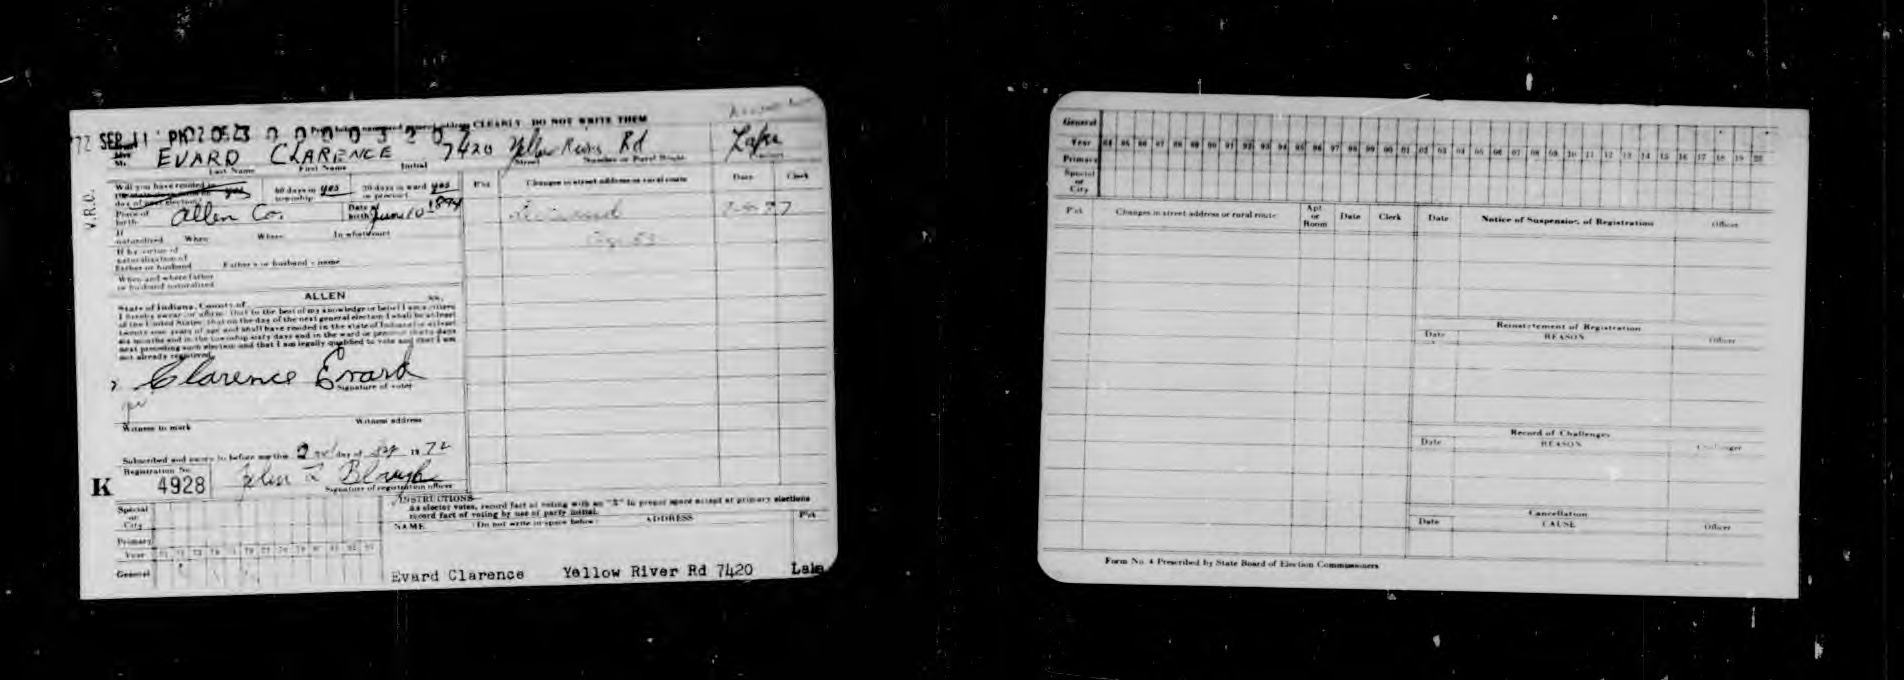 '72 SEP 11 PM 2 05 23 0 0 0 0 3 2 0 7 CLEARLY DO NOT WRITE THEM
EVARD CLARENCE 7420 Yellow River Rd Lake
Last Name First Name Initial Street Number or Rural Route
V.R.O.
Will you have resided in yes 60 days in township yes 30 days in ward or precinct yes
day of next election
Place of birth Allen Co. Date of birth June 10 - 1894
If naturalized When Where In what court
If by virtue of naturalization of Father or husband Father's or husband's name
When and where father or husband naturalized
State of Indiana, County of ALLEN ss.
I hereby swear or affirm that to the best of my knowledge or belief I am a citizen
of the United States; that on the day of the next general election I shall be at least
twenty-one years of age and shall have resided in the state of Indiana at least
six months and in the township sixty days and in the ward or precinct thirty days
next preceding such election and that I am legally qualified to vote and that I am
not already registered.
Clarence Evard
Signature of voter
Witness to mark Witness address
Subscribed and sworn to before me this 2nd day of Sep 1972
Registration No.
K 4928
Signature of registration officer
Special or City
Primary
Year
General
P'ct Changes in street address or rural route Date Clerk
INSTRUCTIONS
As elector votes, record fact of voting with an "X" in proper space except at primary elections
record fact of voting by use of party initial.
NAME (Do not write in space below) ADDRESS P'ct
Evard Clarence Yellow River Rd 7420 Lake
General
Year 84 85 86 87 88 89 90 91 92 93 94 95 96 97 98 99 00 01 02 03 04 05 06 07 08 09 10 11 12 13 14 15 16 17 18 19 20
Primary
Special or City
P'ct Changes in street address or rural route Apt. or Room Date Clerk Date Notice of Suspension of Registration Officer
Reinstatement of Registration
Date REASON Officer
Record of Challenges
Date REASON Challenger
Cancellation
Date CAUSE Officer
Form No. 4 Prescribed by State Board of Election Commissioners